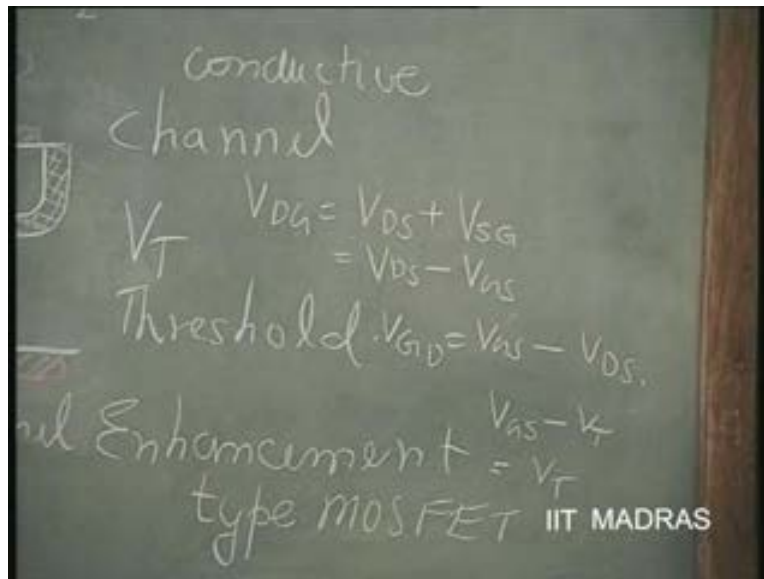 conductive
channel
V_T V_DG = V_DS + V_SG
= V_DS - V_GS
Threshold. V_GD = V_GS - V_DS.
Enhancement V_GS - V_T
= V_T
type MOSFET
IIT MADRAS